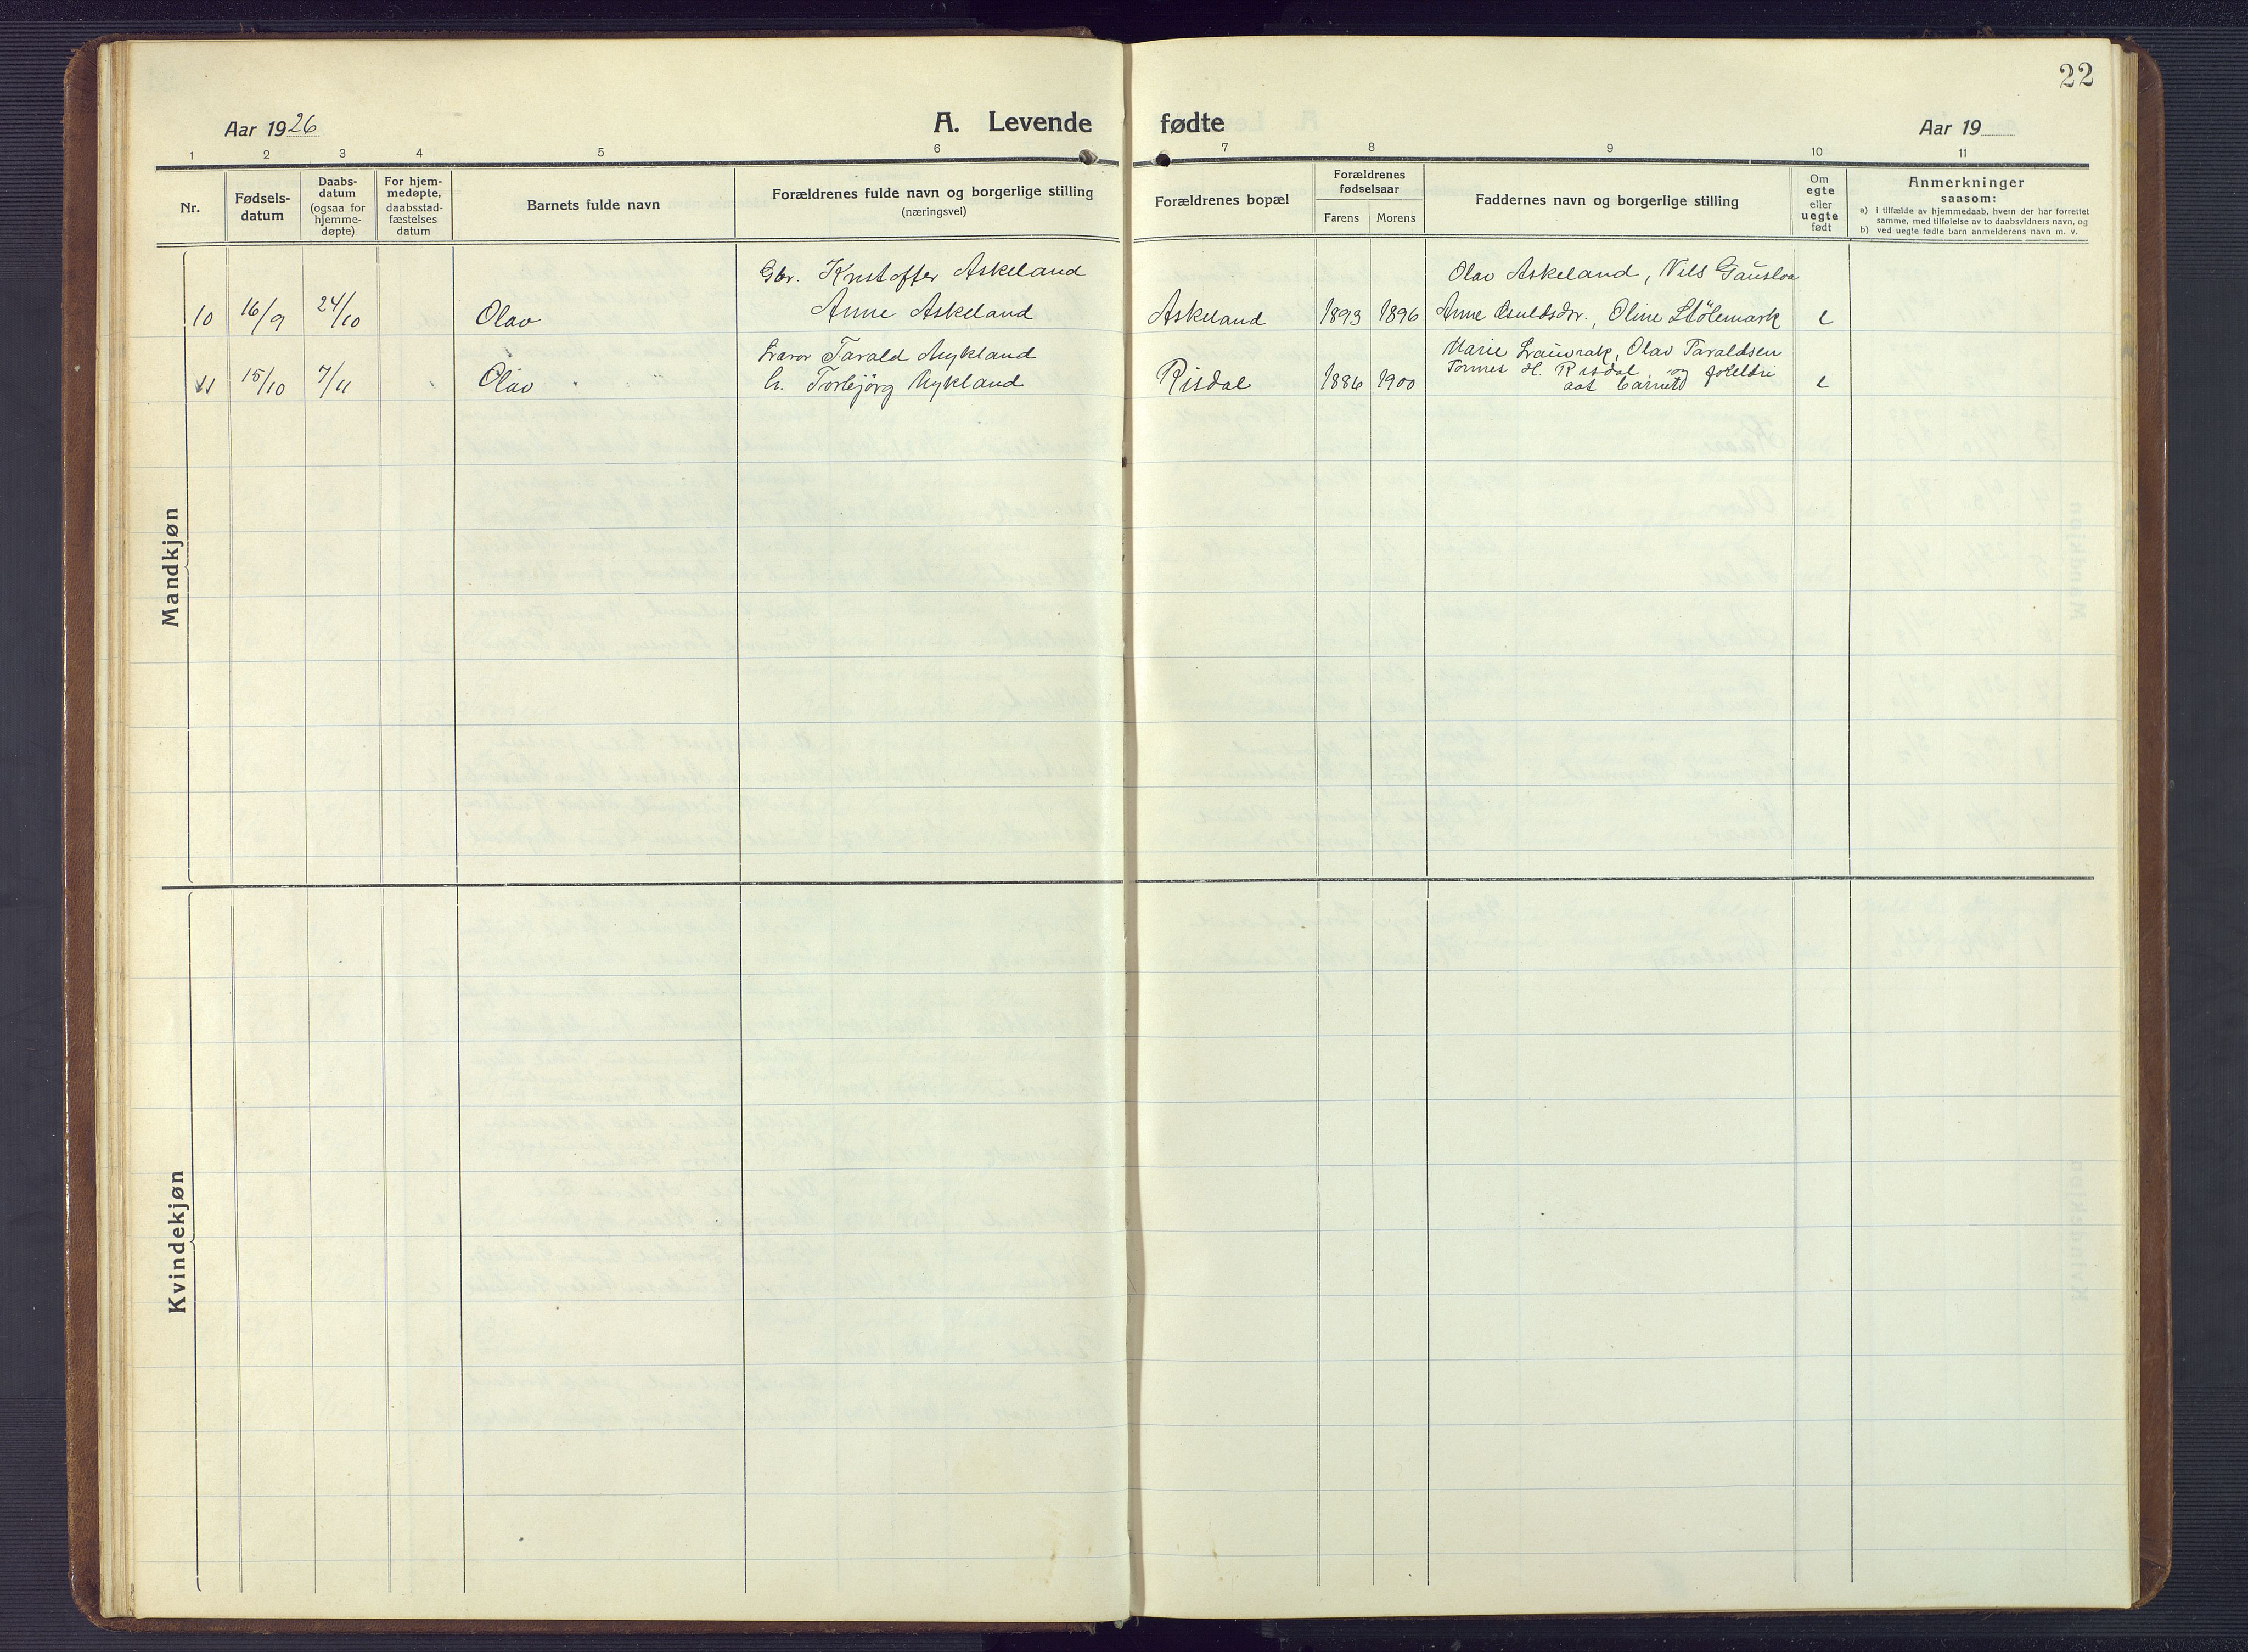 22
Aar 1926
A. Levende fødte
Aar 19
1 2 3 4 5 6 7 8 9 10 11
Nr.
Fødsels-
datum
Daabs-
datum
(ogsaa for
hjemme-
døpte)
For hjem-
medøpte,
daabsstad-
fæstelses
datum
Barnets fulde navn
Forældrenes fulde navn og borgerlige stilling
(næringsvei)
Forældrenes bopæl
Forældrenes
fødselsaar
Farens Morens
Faddernes navn og borgerlige stilling
Om
egte
eller
uegte
født
Anmerkninger
saasom:
a) i tilfælde av hjemmedaab, hvem der har forrettet
samme, med tilføielse av to daabsvidners navn, og
b) ved uegte fødte barn anmelderens navn m. v.
Mandkjøn
Gbr. Kristoffer Askeland Olav Askeland, Nils Gausloa
10 16/9 24/10 Olav Anne Askeland Askeland 1893 1896 Anne Oline Stölemark e
Tarald Mykland Marie Olav Taraldsen
11 15/10 7/11 Olav h. Torbjörg Mykland Risdal 1886 1900 Tomes H. Risdal, og foreldri
aat barnet e
Kvindekjøn